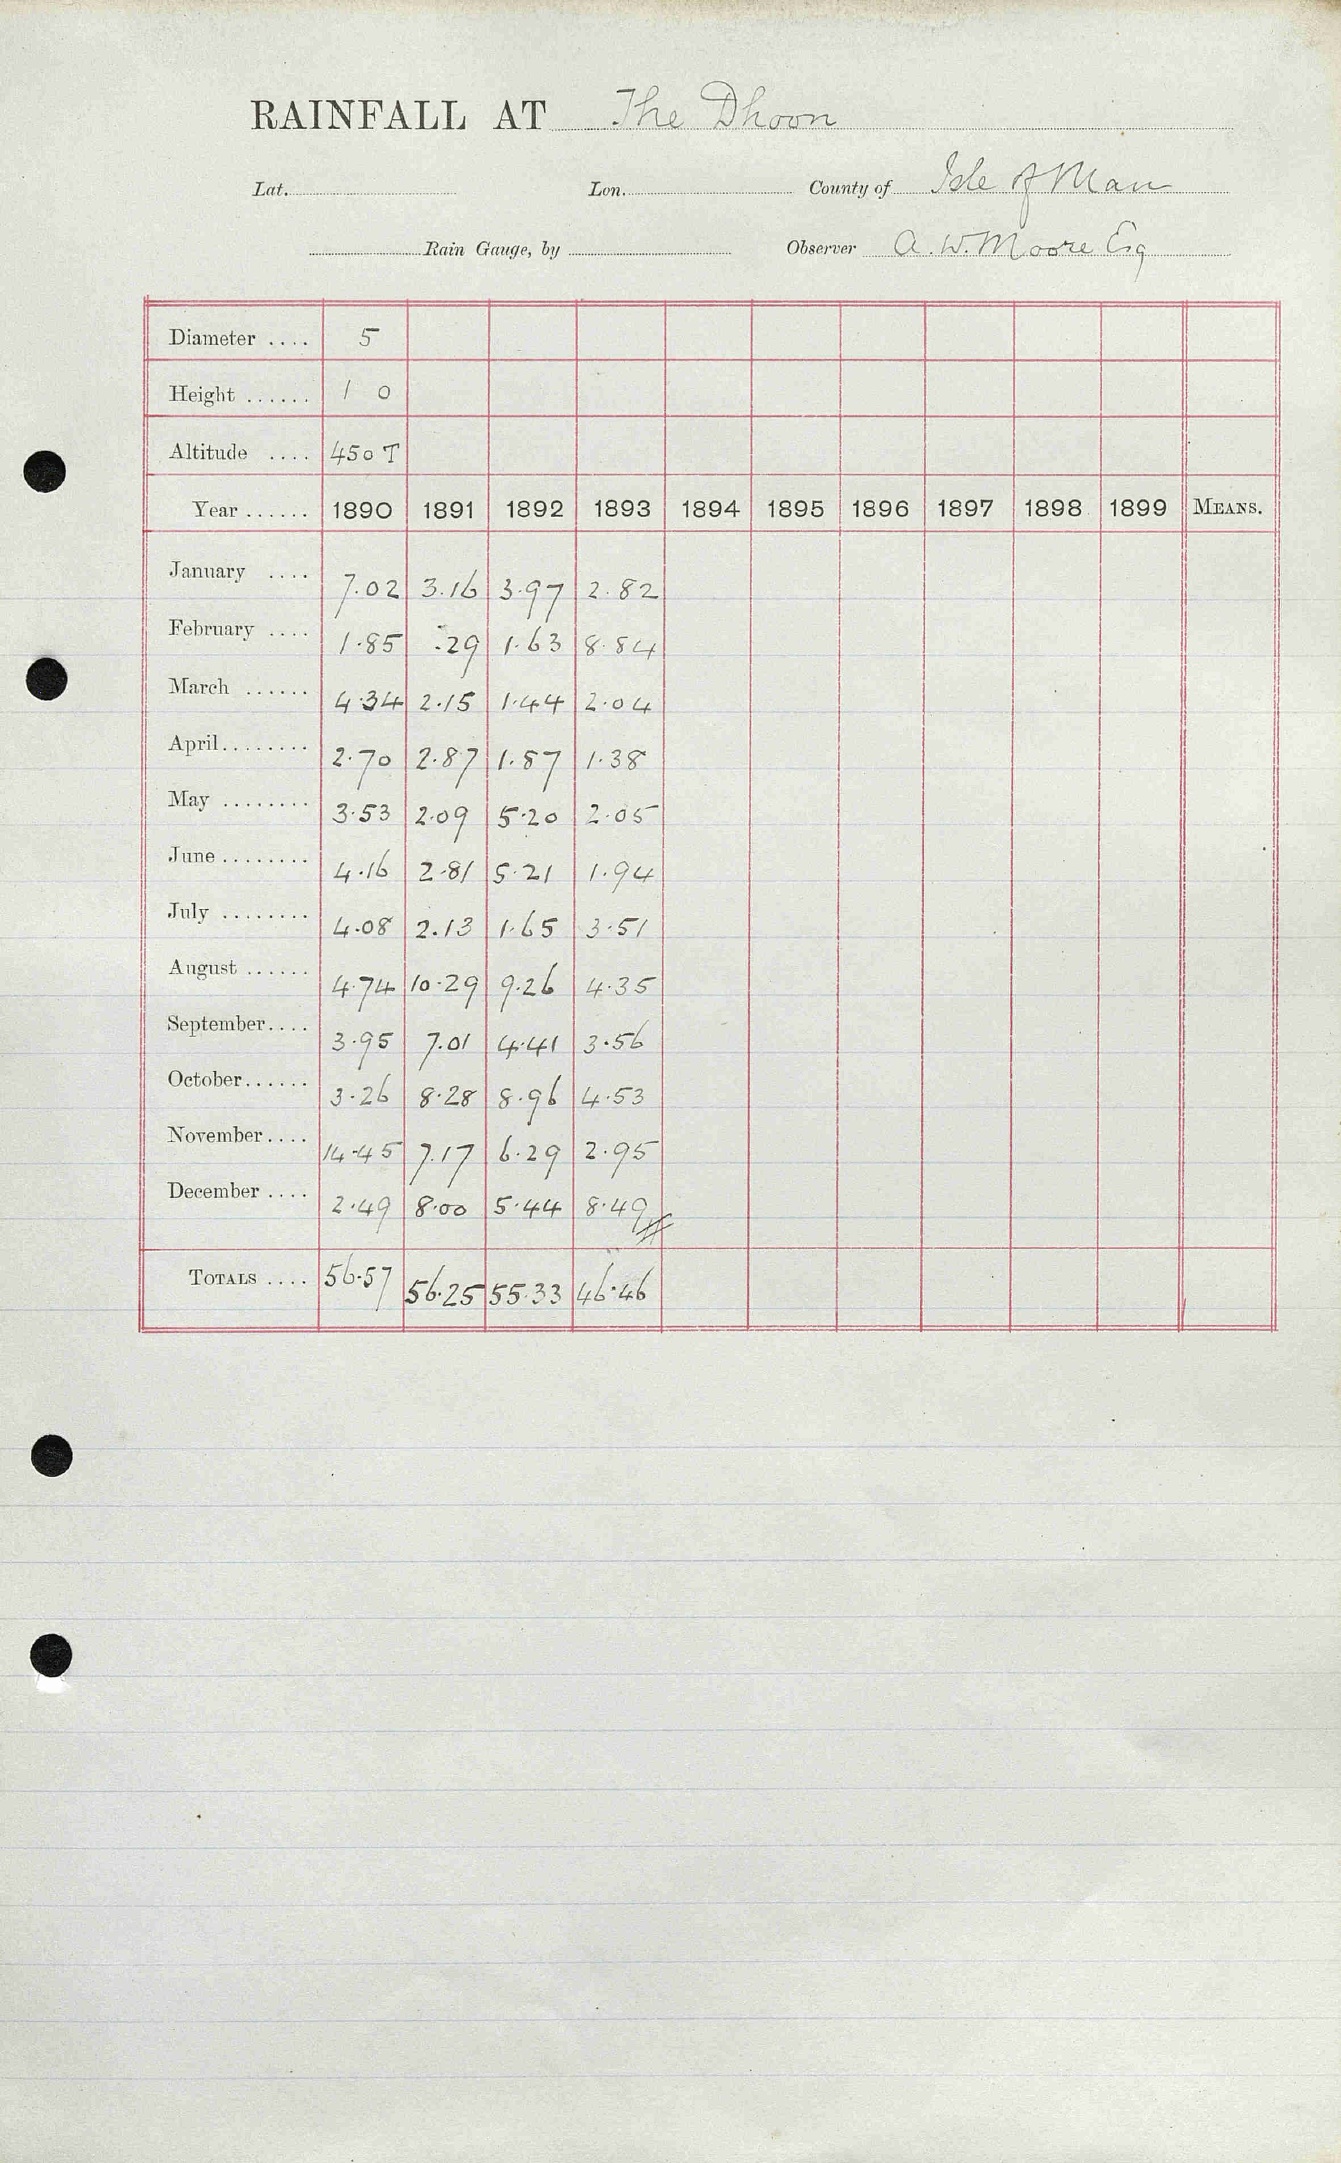 RAINFALL AT The Dhoon
Lat. Lon. County of Isle of Man
Rain Gauge, by Observer A. W. Moore Esq
Diameter .... 5
Height ...... 1 0
Altitude .... 450 T
Year ...... 1890 1891 1892 1893 1894 1895 1896 1897 1898 1899 MEANS.
January .... 7.02 3.16 3.97 2.82
February .... 1.85 .29 1.63 8.84
March ...... 4.34 2.15 1.44 2.04
April........ 2.70 2.87 1.87 1.38
May ........ 3.53 2.09 5.20 2.05
June ........ 4.16 2.81 5.21 1.94
July ........ 4.08 2.13 1.65 3.51
August ...... 4.74 10.29 9.26 4.35
September.... 3.95 7.01 4.41 3.56
October...... 3.26 8.28 8.96 4.53
November.... 14.45 7.17 6.29 2.95
December .... 2.49 8.00 5.44 8.49
TOTALS .... 56.57 56.25 55.33 46.46